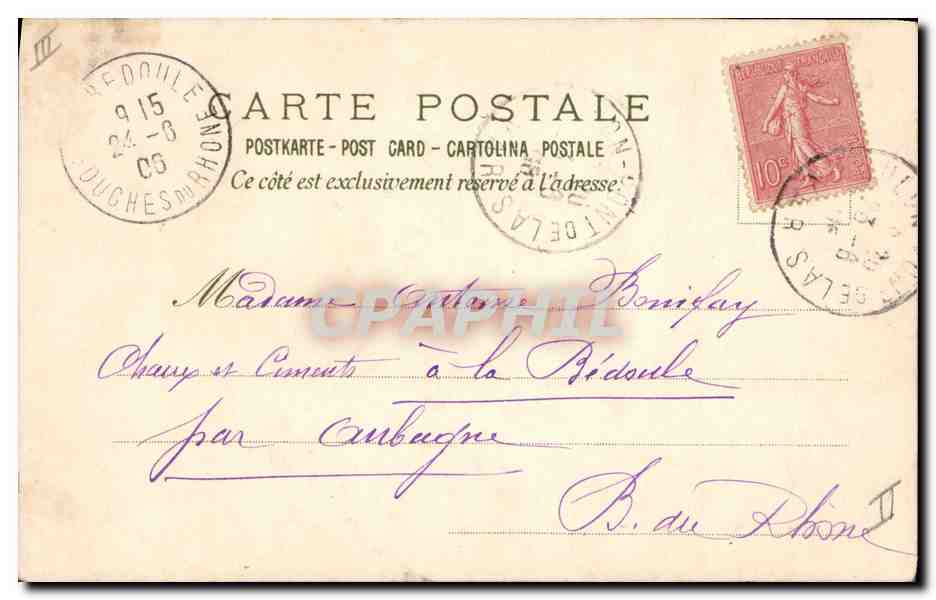 III
BEDOULE
9 15
24 - 6
06
BOUCHES DU RHONE
REPUBLIQUE FRANÇAISE
10c
CARTE POSTALE
POSTKARTE - POST CARD - CARTOLINA POSTALE
Ce côté est exclusivement réservé à l'adresse.
DE LAS R
DE LAS R
Madame Antoine Bonifay
CPAPHIL
Chaux et Ciments à la Bédoule
par Aubagne
B. du Rhône
II